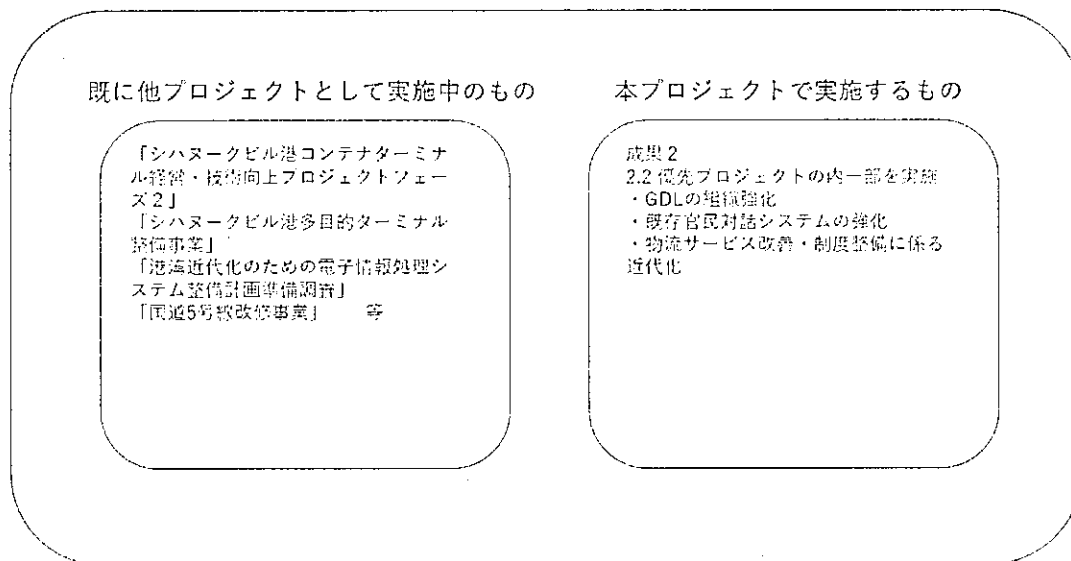 既に他プロジェクトとして実施中のもの
「シハヌークビル港コンテナターミナ
ル経営・技術向上プロジェクトフェー
ズ2」
「シハヌークビル港多目的ターミナル
整備事業」
「港湾近代化のための電子情報処理シ
ステム整備計画準備調査」
「国道5号線改修事業」　　等
本プロジェクトで実施するもの
成果2
2.2 優先プロジェクトの内一部を実施
・GDLの組織強化
・既存官民対話システムの強化
・物流サービス改善・制度整備に係る
近代化